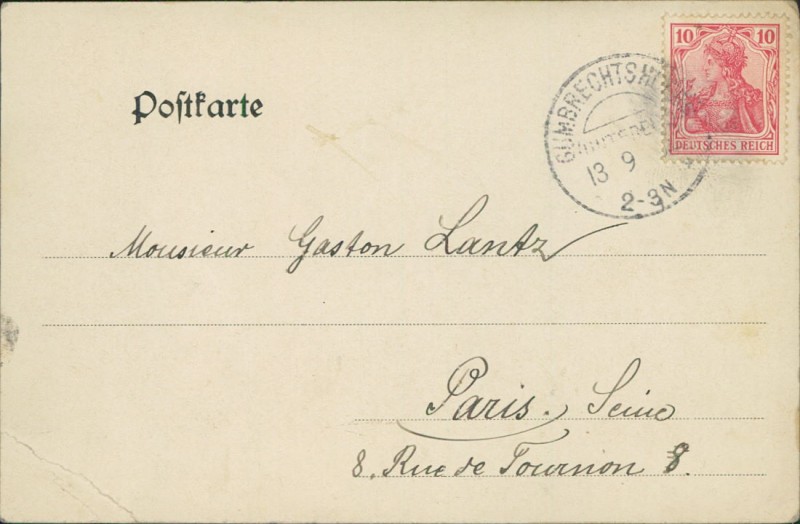 10 10
DEUTSCHES REICH
Postkarte
13 9
2-3N
Monsieur Gaston Lantz
Paris. Seine
8. Rue de Tournon 8.